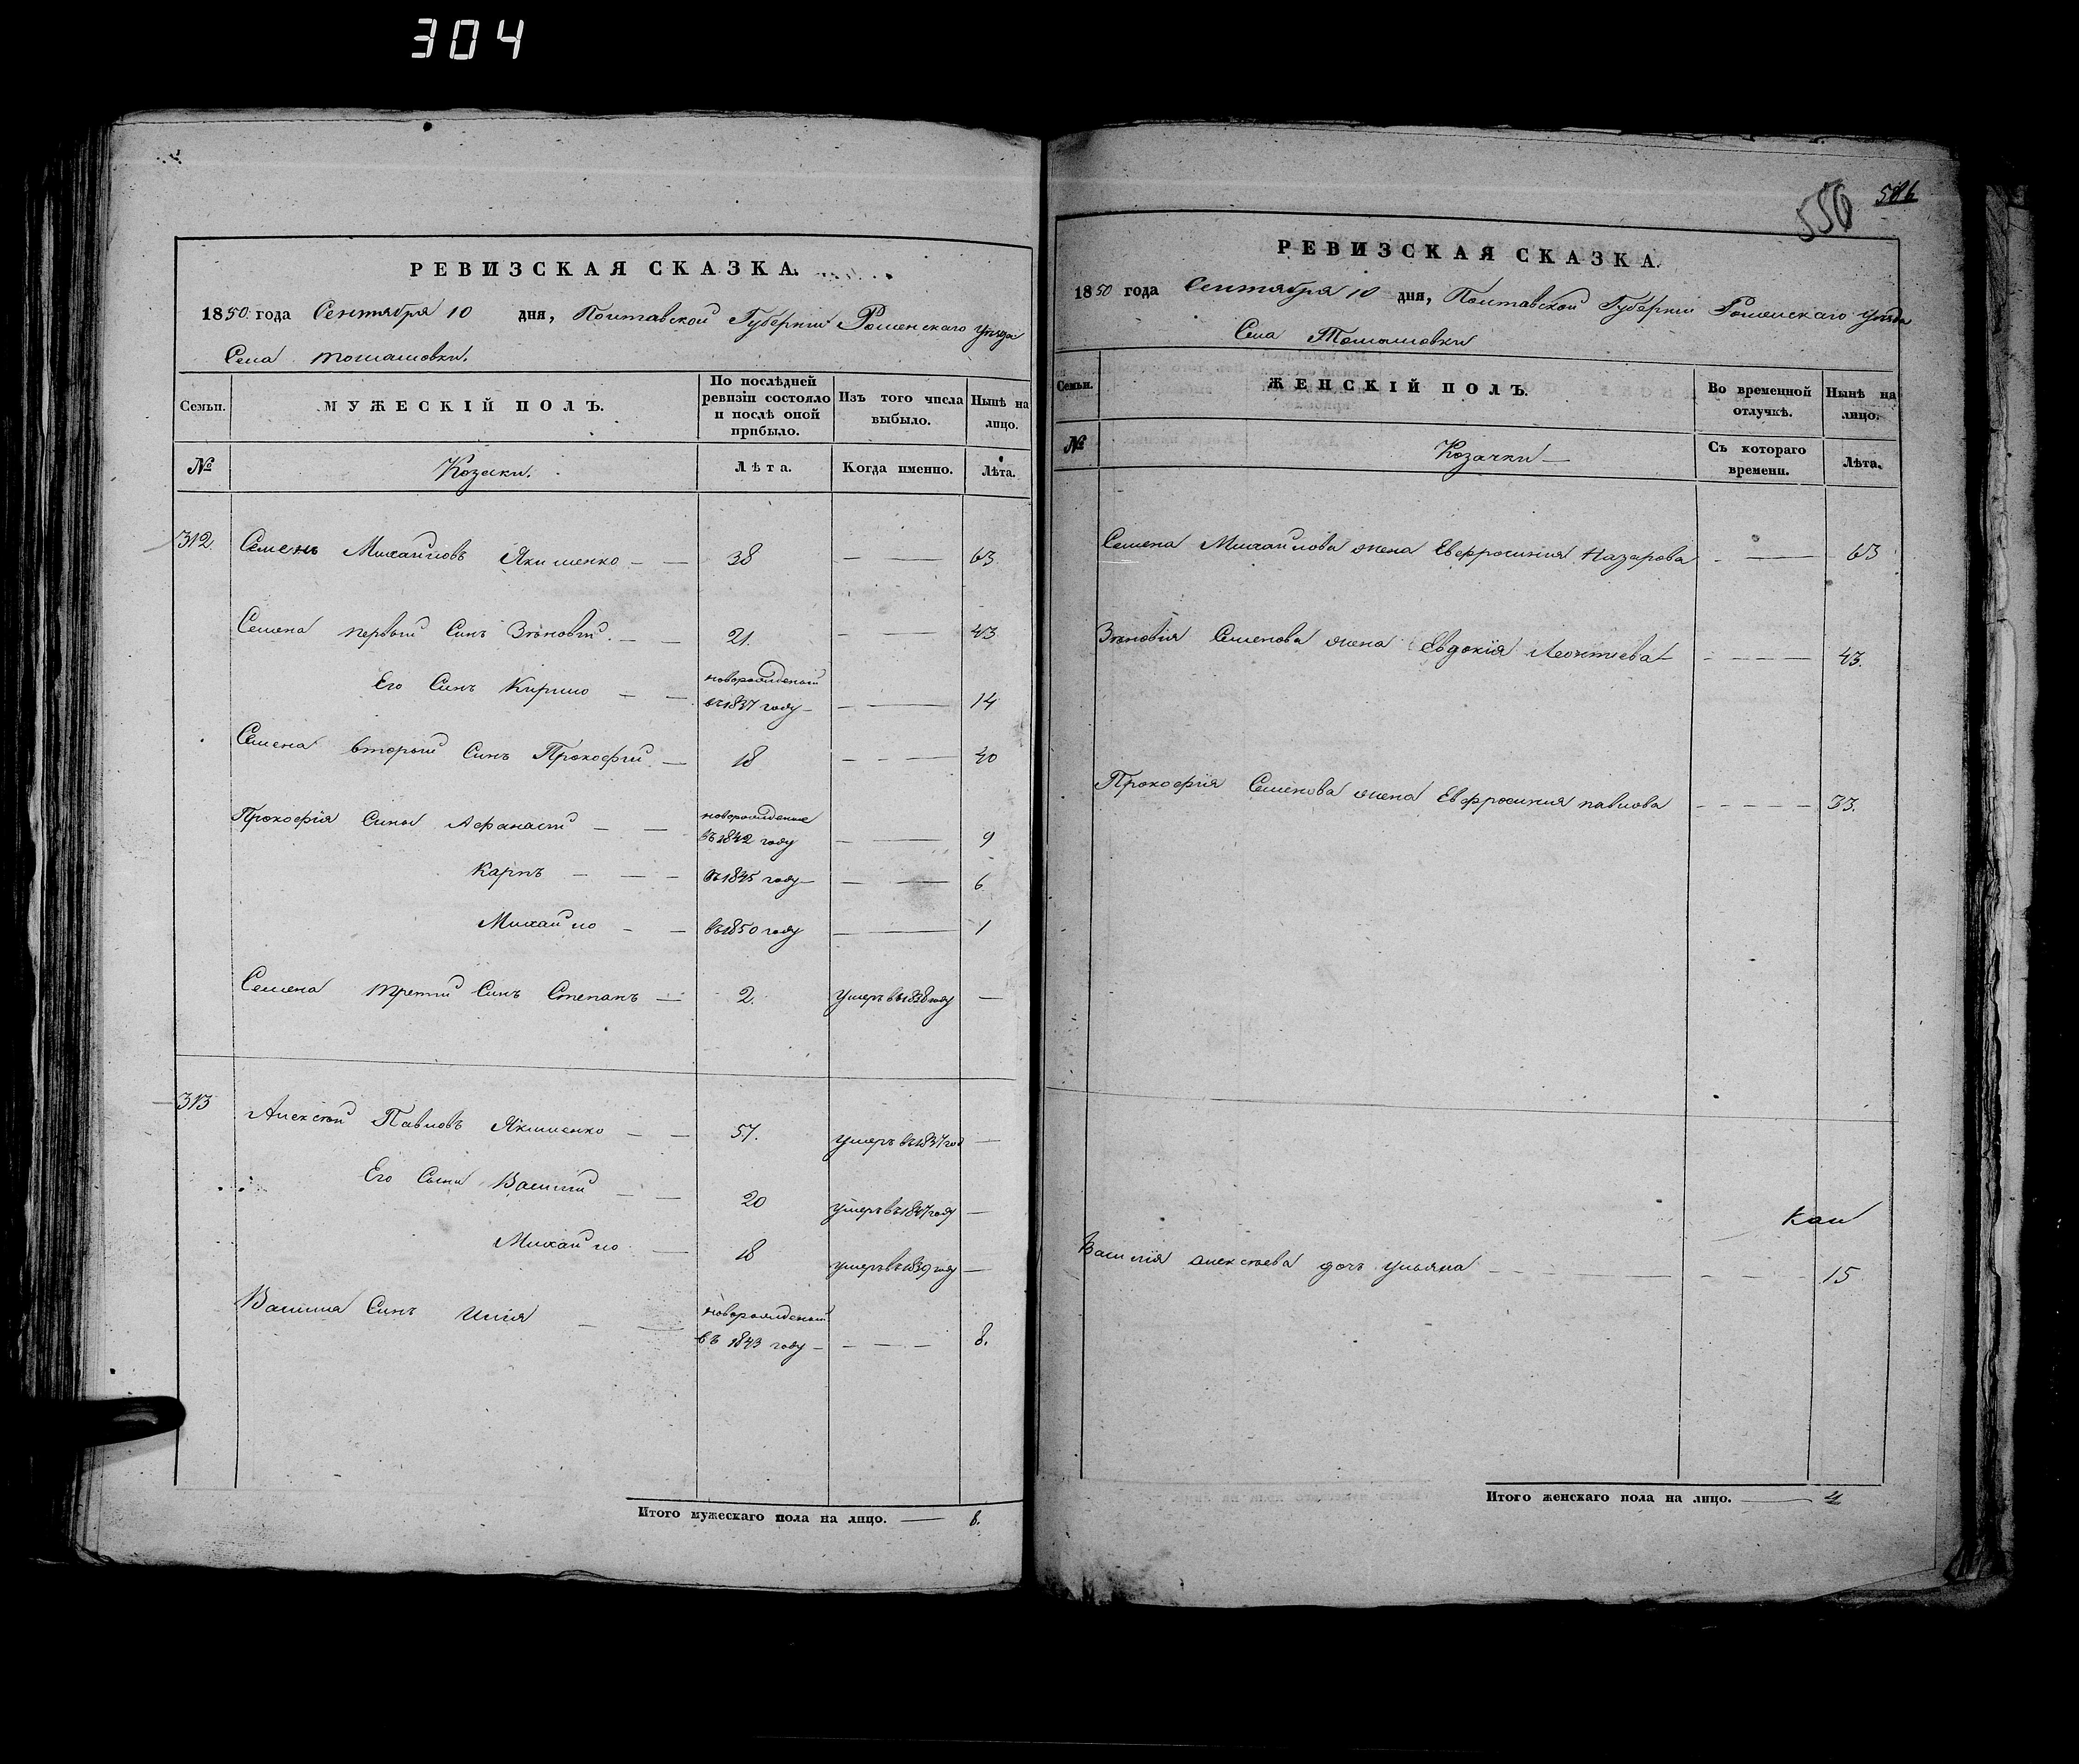 304
РЕВИЗСКАЯ СКАЗКА.
1850 года Сентября 10 дня, Полтавской Губернии Роменскаго уѣзда
Села Томашовки.
Семьи. МУЖЕСКІЙ ПОЛЪ. По послѣдней ревизіи состояло и послѣ оной прибыло. Изъ того числа выбыло. Нынѣ на лицо.
№ Козаки. Лѣта. Когда именно. Лѣта.
312. Семенъ Михайловъ Якименко — — 38 — — 63
Семена первый Синъ Зѣновій. — — 21. — — 43
Его Синъ Кирило — — новорожденый въ 1837 году — — — 14
Семена вторый Синъ Прокофій — 18 — — — 40
Прокофія Сины Афанасій — — новорожденые въ 1842 году — — 9
Карпъ — — — въ 1845 году — — — 6
Михайло — — въ 1850 году — 1
Семена третій Синъ Степанъ — 2. умеръ въ 1838 году —
313 Алексѣй Павловъ Якименко — — 57. умеръ въ 1837 год —
Его Сыни Василій — — 20 умеръ въ 1847 году —
Михайло — 18 умеръ въ 1839 году —
Василия Синъ Илія — — новорожденый въ 1843 году — — — — 8.
Итого мужескаго пола на лицо. — 8.
556 586
РЕВИЗСКАЯ СКАЗКА.
1850 года Сентября 10 дня, Полтавской Губернии Роменскаго уѣзда
Села Томашовки
Семьи. ЖЕНСКІЙ ПОЛЪ. Во временной отлучкѣ. Нынѣ на лицо.
№ Козачки — Съ котораго времени. Лѣта.
Семена Михайлова жена Евфросинія Назарова — — 63
Зѣновія Семенова жена Евдокія Леонтіева — — — — — 43.
Прокофія Семенова жена Евфросиния павлова — — — — — 33.
Василія алексѣева дочъ ульяна — — — — — — — — 15
Итого женскаго пола на лицо. — 4